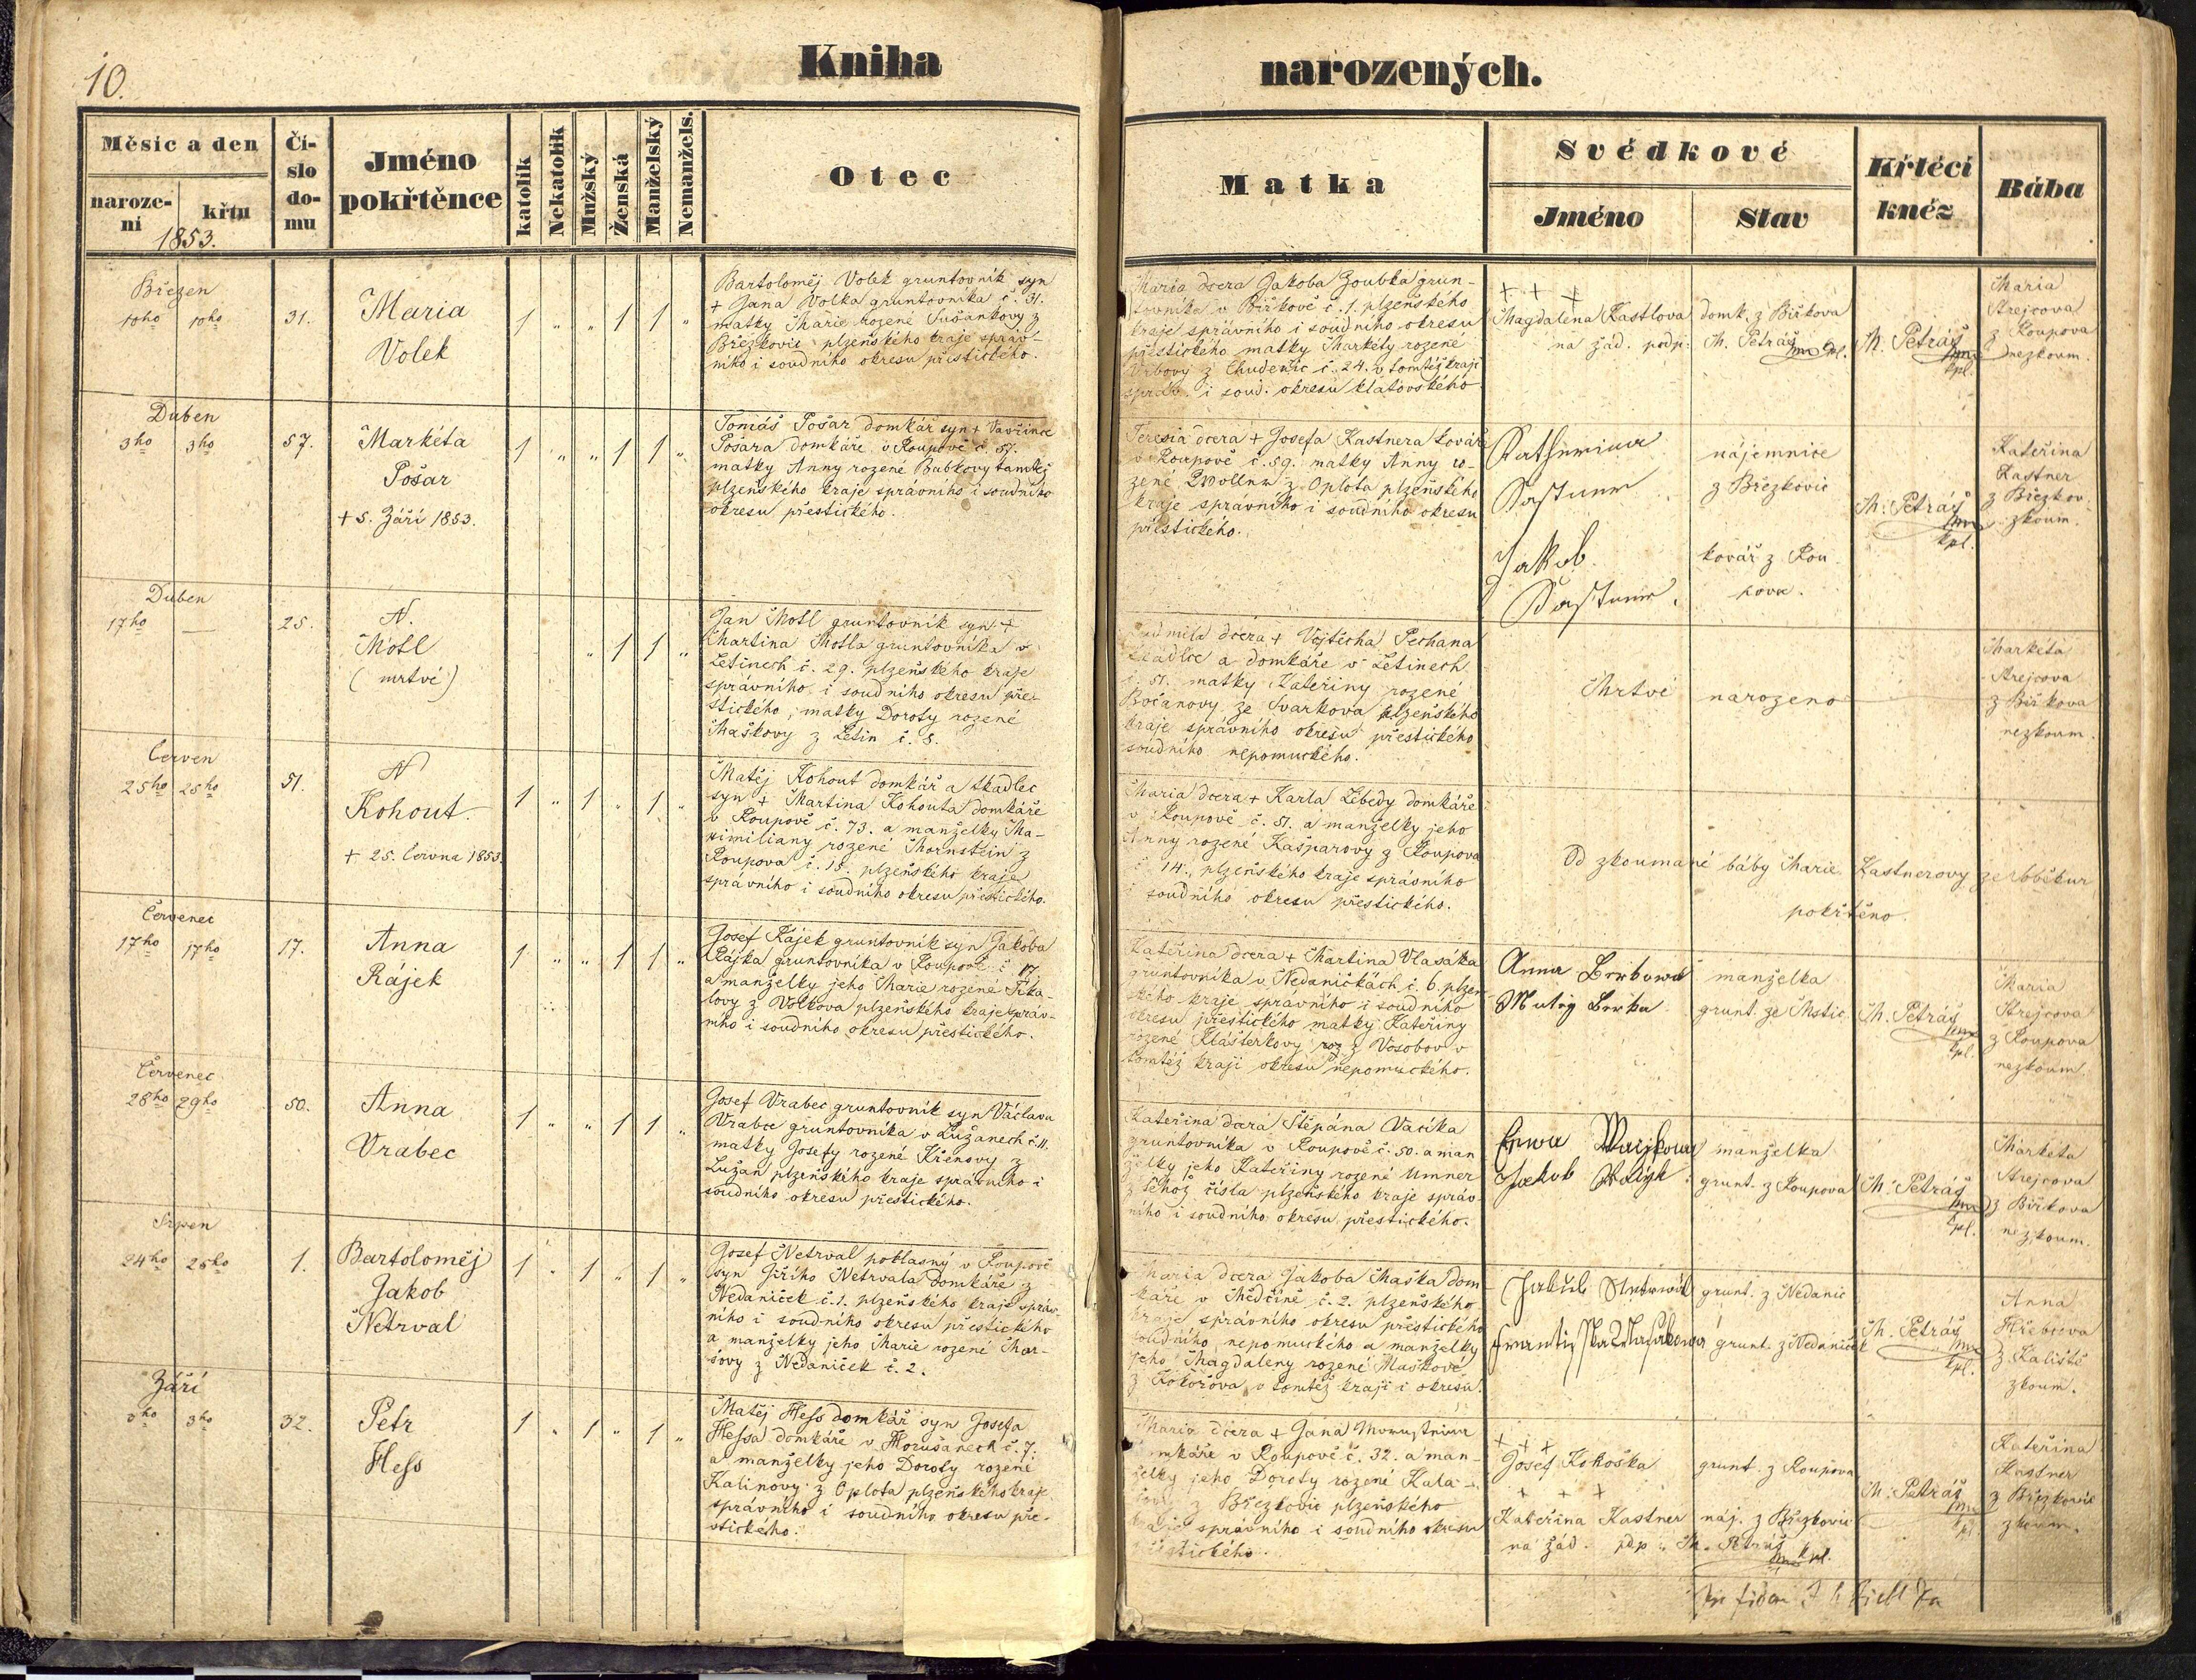 10.
Kniha narozených.
Měsíc a den
narození
křtu
1853.
Číslo domu
Jméno pokřtěnce
katolík
Nekatolík
Mužský
Ženská
Manželský
Nemanžels.
Otec
Matka
Svědkové
Jméno
Stav
Křtécí knéz
Bába
Březen
10ho 10ho
31.
Maria
Volek
1 „ „ 1 1 „
Bartoloměj Volek gruntovník syn
+ Jana Volka gruntovníka č. 31.
matky Marie rozené Sušankovy z
Březkovic plzeňského kraje správ-
ního i soudního okresu přestického.
Maria dcera Jakoba Zoubka grun-
tovníka v Biřkově č. 1. plzeňského
kraje správního i soudního okresu
přestického matky Markéty rozené
Vrbovy z Chudenic č. 24. v tomtéž kraji
správ. i soud. okresu klatovského
+ + +
Magdalena Kastlova domk. z Biřkova
na žád. podp: M. Petráš mp kpl.
M. Petráš
mp
kpl.
Maria
Strejcova
z Roupova
nezkoum.
Duben
3ho 3ho
57.
Markéta
Pošar
+ 5. Září 1853.
1 „ „ 1 1 „
Tomáš Pošar domkář syn + Vavřince
Pošara domkáře v Roupově č. 57.
matky Anny rozené Babkovy tamtéž
plzeňského kraje správního i soudního
okresu přestického.
Teresia dcera + Josefa Kastnera kováře
v Roupově č. 59. matky Anny ro-
zené z Oplota plzeňského
kraje správního i soudního okresu
přestického.
Katherina
Kastner
nájemnice
z Březkovic
Jakob
Kastner.
kovář z Rou
pova.
M. Petráš
mp
kpl.
Kateřina
Kastner
z Březkov.
zkoum.
Duben
17ho —
25.
N.
Motl
(mrtvé)
„ 1 1 „
Jan Motl gruntovník syn +
Martina Motla gruntovníka v
Letinech č. 29. plzeňského kraje
správního i soudního okresu pře-
stického, matky Doroty rozené
Maškovy z Letin č. 8.
Ludmila dcera + Vojtěcha Pechana
tkadlce a domkáře v Letinech
č. 51. matky Kateřiny rozené
Bočanovy ze Svarkova plzeňského
kraje správního okresu přestického
soudního nepomuckého.
Mrtvé narozeno
Markéta
Strejcova
z Biřkova
nezkoum.
Červen
25ho 25ho
51.
N
Kohout.
+ 25. Června 1853.
1 „ 1 „ 1 „
Matěj Kohout domkář a tkadlec
syn + Martina Kohouta domkáře
v Roupově č. 73. a manželky Ma-
ximiliany rozené Mornstein z
Roupova č. 15. plzeňského kraje
správního i soudního okresu přestického.
Maria dcera + Karla Lebedy domkáře
v Roupově č. 51. a manželky jeho
Anny rozené Kašparovy z Roupova
č. 14., plzeňského kraje správního
i soudního okresu přestického.
Od zkoumané báby Marie Kastnerovy ze
pokřtěno.
Červenec
17ho 17ho
17.
Anna
Rájek
1 „ „ 1 1 „
Josef Rájek gruntovník syn Jakoba
Rájka gruntovníka v Roupově č. 17.
a manželky jeho Marie rozené Fika-
lovy z Volkova plzeňského kraje správ-
ního i soudního okresu přestického.
Kateřina dcera + Martina Vlasáka
gruntovníka v Nedaničkách č. 6. plzeň-
ského kraje správního i soudního
okresu přestického matky Kateřiny
rozené Klášterkovy roz z Vosobov v
tomtéž kraji okresu nepomuckého.
Anna
Matěj
manželka
grunt. ze Mstic
M. Petráš
mp
kpl.
Maria
Strejcova
z Roupova
nezkoum.
Červenec
28ho 29ho
50.
Anna
Vrabec
1 „ „ 1 1 „
Josef Vrabec gruntovník syn Václava
Vrabce gruntovníka v Lužanech č. 11.
matky Josefy rozené Křenovy z
Lužan plzeňského kraje správního i
soudního okresu přestického.
Kateřina dcera Štěpána Vacíka
gruntovníka v Roupově č. 50. a man
želky jeho Kateřiny rozené Umner
z téhož čísla plzeňského kraje správ-
ního i soudního okresu přestického.
Anna
Jakob
manželka
grunt. z Roupova
M. Petráš
mp
kpl.
Markéta
Strejcova
z Biřkova
nezkoum.
Srpen
24ho 25ho
1.
Bartoloměj
Jakob
Netrval
1 „ 1 „ 1 „
Josef Netrval poklasný v Roupově
syn Jiřího Netrvala domkáře z
Nedaniček č. 1. plzeňského kraje správ-
ního i soudního okresu přestického
a manželky jeho Marie rozené Mar-
šovy z Nedaniček č. 2.
Maria dcera Jakoba Maška dom
káře v Mědčíně č. 2. plzeňského
kraje správního okresu přestického
soudního nepomuckého a manželky
jeho Magdaleny rozené Maškové
z Kokořova v tomtéž kraji i okresu.
Jakub Netrwal grunt. z Nedanic
Frantisska grunt. z Nedaniček
M. Petráš
mp
kpl.
Anna
Hřebcova
z Kaliště
zkoum.
Září
3ho 3ho
32.
Petr
Hess
1 „ 1 „ 1 „
Matěj Hess domkář syn Josefa
Hessa domkáře v Horušanech č. 7.
a manželky jeho Doroty rozené
Kalinovy z Oplota plzeňského kraje
správního i soudního okresu pře-
stického.
Maria dcera + Jana
domkáře v Roupově č. 32. a man-
želky jeho Doroty rozené Kala-
z Březkovic plzeňského
kraje správního i soudního okresu
přestického.
+ + +
Josef Kokoška grunt. z Roupova
+ + +
Kateřina Kastner náj. z Březkovic
na žád. pdp: M. Petráš
mp kpl.
M. Petráš
mp
kpl.
Kateřina
Kastner
z Březkovic
zkoum.